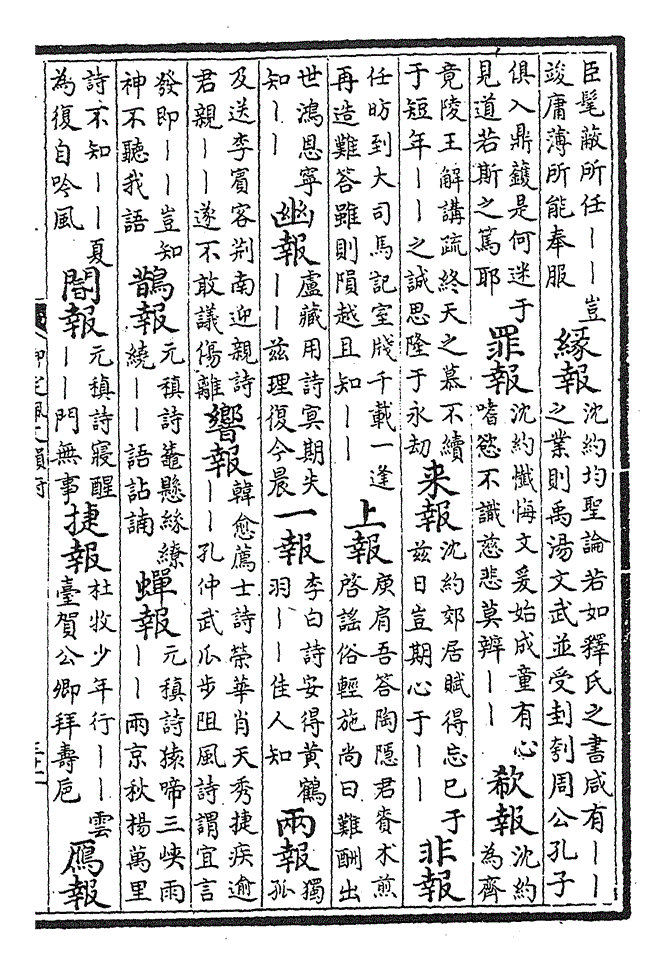 臣髦蔽所任丨丨豈
竣庸薄所能奉服
緣報
沈約均聖論若如釋氏之書咸有丨丨
之業則禹湯文武並受刲刳周公孔子
俱入鼎鑊是何迷于
見道若斯之篤耶
罪報
沈約懺悔文爰始成童有心
嗜慾不識慈悲莫辨丨丨
欷報
沈約
為齊
竟陵王解講疏終天之慕不續
于短年丨丨之誠思隆于永劫
来報
沈約郊居賦得忘已于
兹日豈期心于丨丨
非報
任昉到大司馬記室牋千載一逢
再造難答雖則隕越且知丨丨
上報
庾肩吾答陶隱君賚术煎
啓謠俗輕施尚曰難酬出
世鴻恩寧
知丨丨
幽報
盧藏用詩冥期失
丨丨兹理復今晨
一報
李白詩安得黃鶴
羽丨丨佳人知
兩報
獨
孤
及送李賓客荆南迎親詩
君親丨丨遂不敢議傷離
響報
韓愈薦士詩榮華肖天秀捷疾逾
丨丨孔仲武瓜步阻風詩謂宜言
發即丨丨豈知
神不聽我語
鵲報
元稹詩懸絲繚
繞丨丨語詀諵
蟬報
元稹詩猿啼三峽雨
丨丨兩京秋楊萬里
詩不知丨丨夏
為復自吟風
闇報
元稹詩寢醒
丨丨門無事
捷報
杜牧少年行丨丨雲
臺賀公卿拜壽巵
鴈報
御定佩文韻府